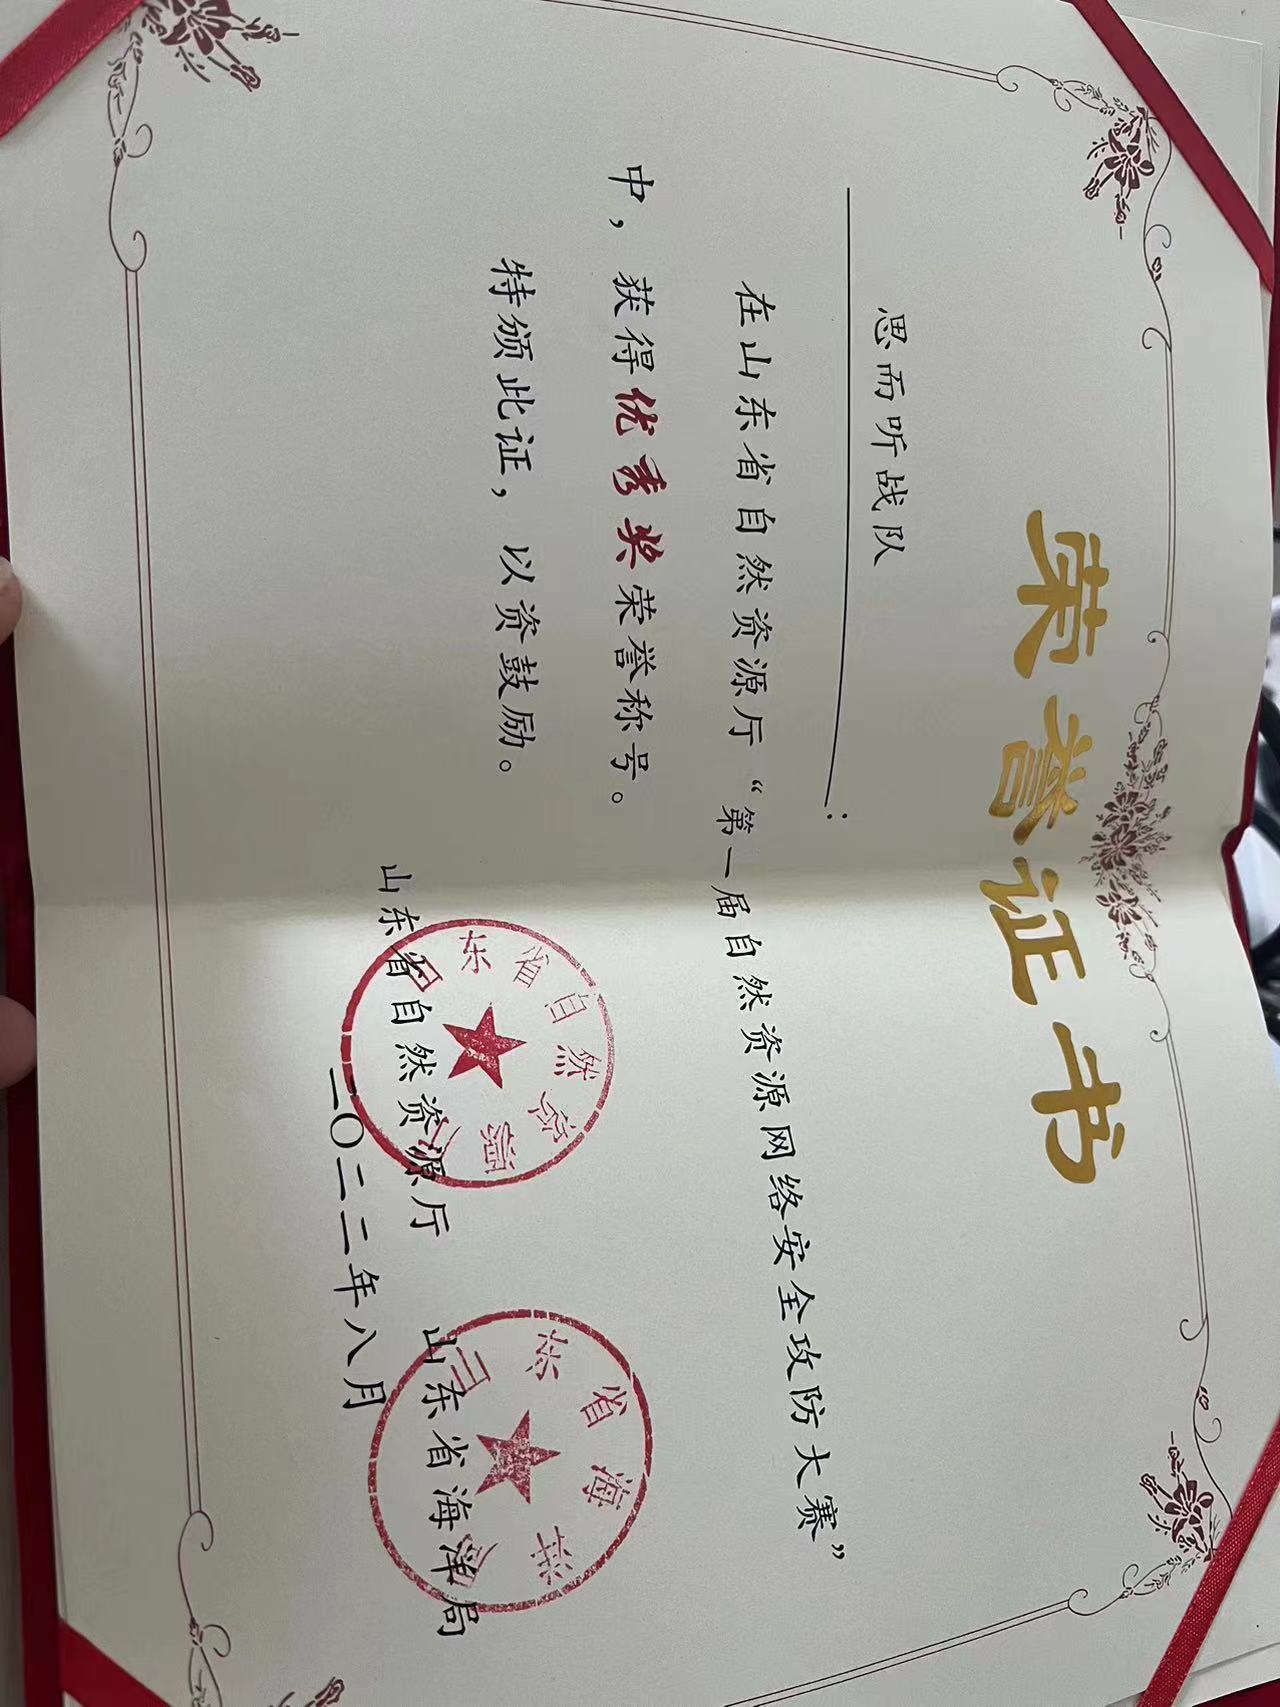 荣誉证书
思而听战队：
在山东省自然资源厅“第一届自然资源网络安全攻防大赛”
中，获得优秀奖荣誉称号。
特颁此证，以资鼓励。
山东省自然资源厅 山东省海洋局
二〇二二年八月
山东省自然资源厅
山东省海洋局